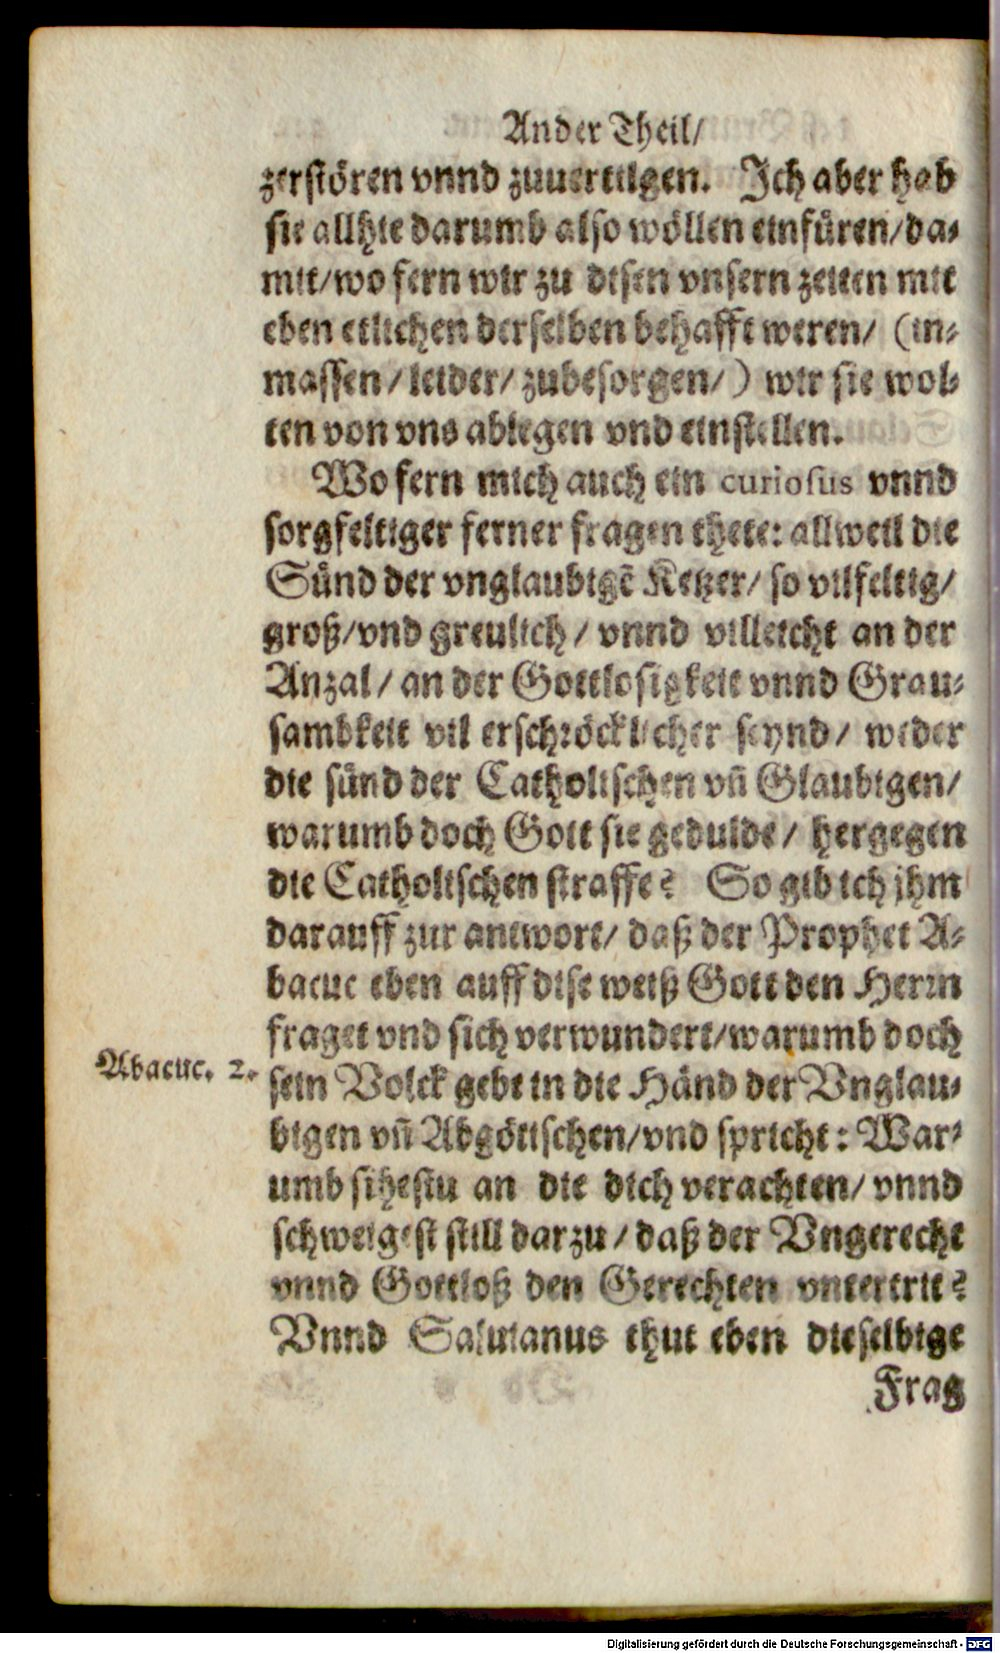 Ander Theil/
zerstören vnnd zuuertilgen. Ich aber hab
sie allhie darumb also wöllen einfüren/da-
mit/wo fern wir zu disen vnsern zeiten mit
eben etlichen derselben behafft weren/ (in-
massen/leider/zubesorgen/) wir sie wol-
ten von vns ablegen vnd einstellen.
Wo fern mich auch ein curiosus vnnd
sorgfeltiger ferner fragen thete: allweil die
Sünd der vnglaubigē Ketzer/ so vilfeltig/
groß/vnd greulich/ vnnd villeicht an der
Anzal/ an der Gottlosigkeit vnnd Grau-
sambkeit vil erschröcklicher seynd/ weder
die sünd der Catholischen vn̄ Glaubigen/
warumb doch Gott sie gedulde/ hergegen
die Catholischen straffe? So gib ich jhm
darauff zur antwort/ daß der Prophet A-
bacuc eben auff dise weiß Gott den Herrn
fraget vnd sich verwundert/warumb doch
Abacuc. 2. sein Volck gebe in die Händ der Vnglau-
bigen vn̄ Abgöttischen/vnd spricht: War-
umb sihestu an die dich verachten/ vnnd
schweigest still darzu/ daß der Vngerecht
vnnd Gottloß den Gerechten vntertrit?
Vnnd Saluianus thut eben dieselbige
Frag
Digitalisierung gefördert durch die Deutsche Forschungsgemeinschaft - DFG